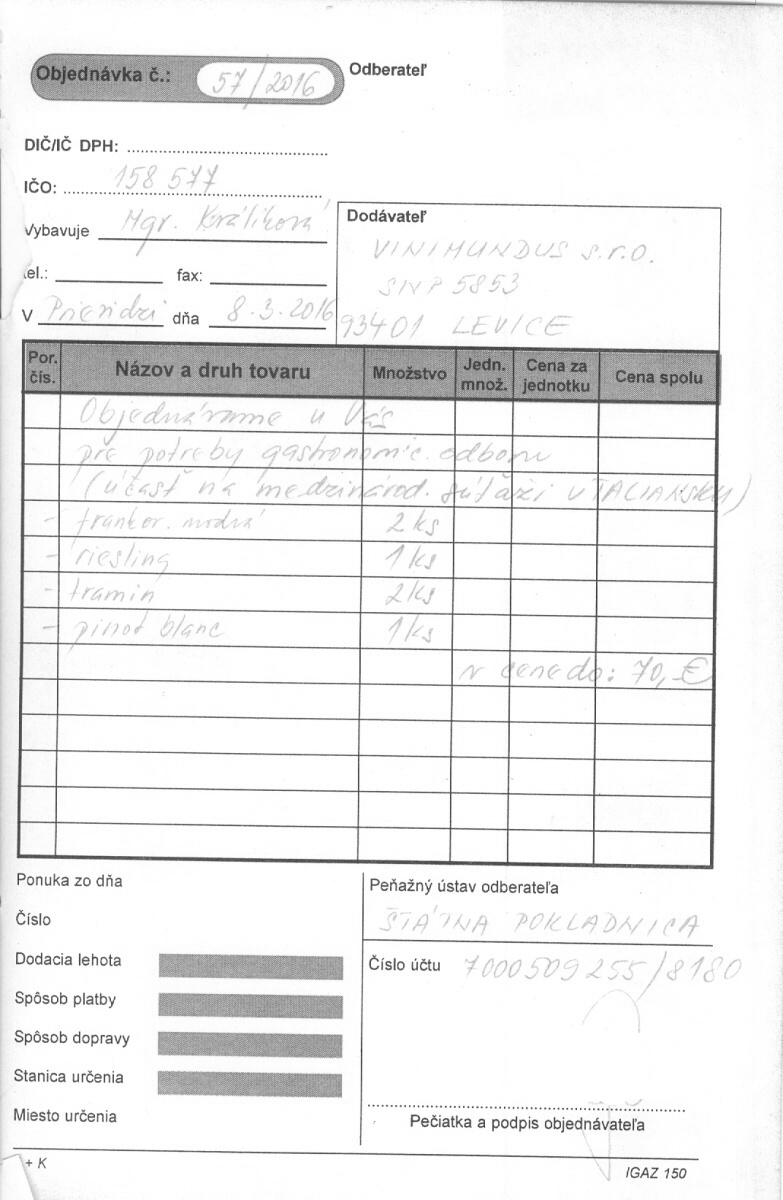 Objednávka č.: 57/2016
Odberateľ
DIČ/IČ DPH:
IČO: 158 577
Vybavuje Mgr. Králiková
tel.: fax:
V Prievidzi dňa 8.3.2016
Dodávateľ
VINIMUNDUS s.r.o.
SNP 5853
93401 LEVICE
Por. čís. Názov a druh tovaru Množstvo Jedn. množ. Cena za jednotku Cena spolu
Objednávame u Vás
pre potreby gastronomic. odboru
(účasť na medzinárod. súťaži v TALIANSKU)
- frankov. modrá 2 ks
- riesling 1 ks
- tramín 2 ks
- pinot blanc 1 ks
v cene do: 70,- €
Ponuka zo dňa
Číslo
Dodacia lehota
Spôsob platby
Spôsob dopravy
Stanica určenia
Miesto určenia
Peňažný ústav odberateľa
ŠTÁTNA POKLADNICA
Číslo účtu 7000509255/8180
Pečiatka a podpis objednávateľa
+ K
IGAZ 150